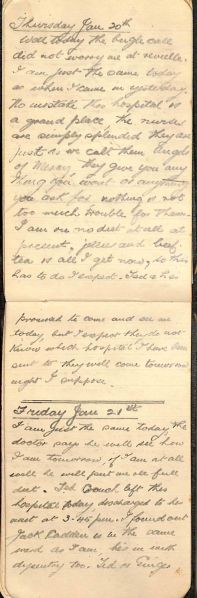 Thursday Jan 20th
Well today the bugle call
did not worry me at reveille.
I am just the same today
as when I came in yesterday.
No mistake this hospital is
a grand place the nurses
are simply splendid they are
just as we call them Angels
of Mercy they give you any
thing you want or anything
you ask for nothing is not
too much trouble for them.
I am on no diet at all at
present, jellies and beef
tea is all I get now, so this
has to do I expect. Ted & 
promised to come and see me
today but I expect they do not
know which hospital I have been
sent to they will come tomorrow
night I suppose.
Friday Jan 21st
I am just the same today the
doctor says he will see how
I am tomorrow if I am at all
well he will put me on full
diet. Ted Couch left this
hospital today discharged to his
unit at 3-45 pm. I found out
Jack Madden is in the same
ward as I am, he's in with
dysentry too. Ted or Ginger